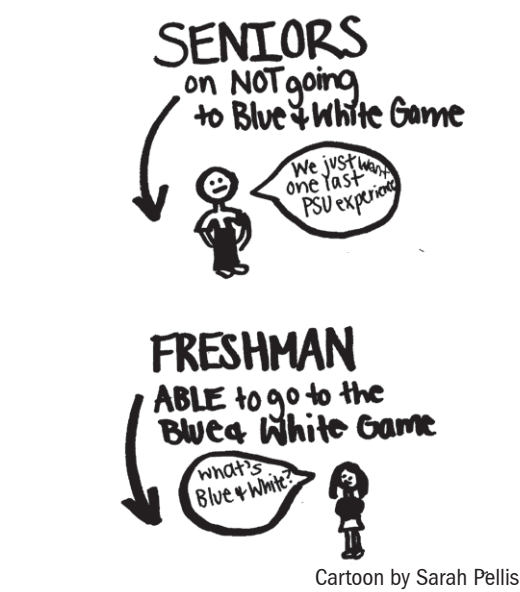 SENIORS
on NOT going
to Blue & White Game
We just want
one last
PSU experience
FRESHMAN
ABLE to go to the
Blue & White Game
What's
Blue & White?
Cartoon by Sarah Pellis